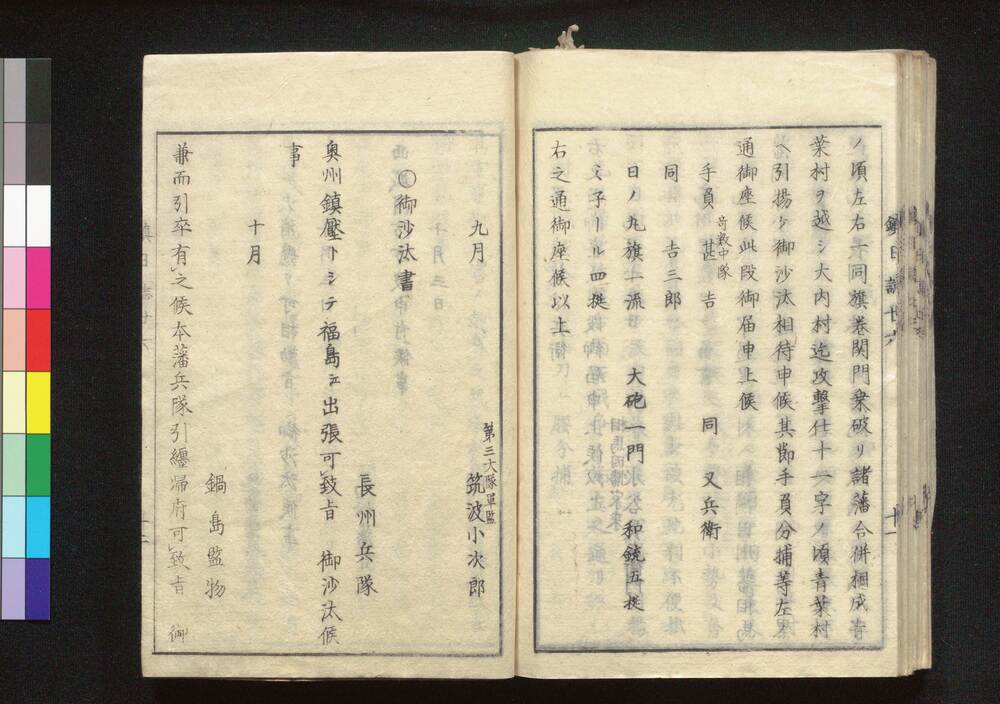 ノ頃左右一同旗巻関門衆破リ諸藩合併椢成青
葉村ヲ越シ大内村迄攻撃仕十一字ノ頃青葉村
ヘ引揚ケ御沙汰相待申候其節手負分捕等左
通御座候此段御届申上候
手負 苛数中隊 甚吉 同 又兵衛
同 吉三郎
日ノ丸旗一流 大砲一門 和銃五挺
ミ子ール四挺
右之通御座候以上
九月 第三大隊軍監 筑波小次郎
御沙汰書
長州兵隊
奥州鎮壓トシテ福島エ出張可致旨 御沙汰候
事
十月
鍋島監物
兼而引卒有之候本藩兵隊引纏帰府可致旨 御